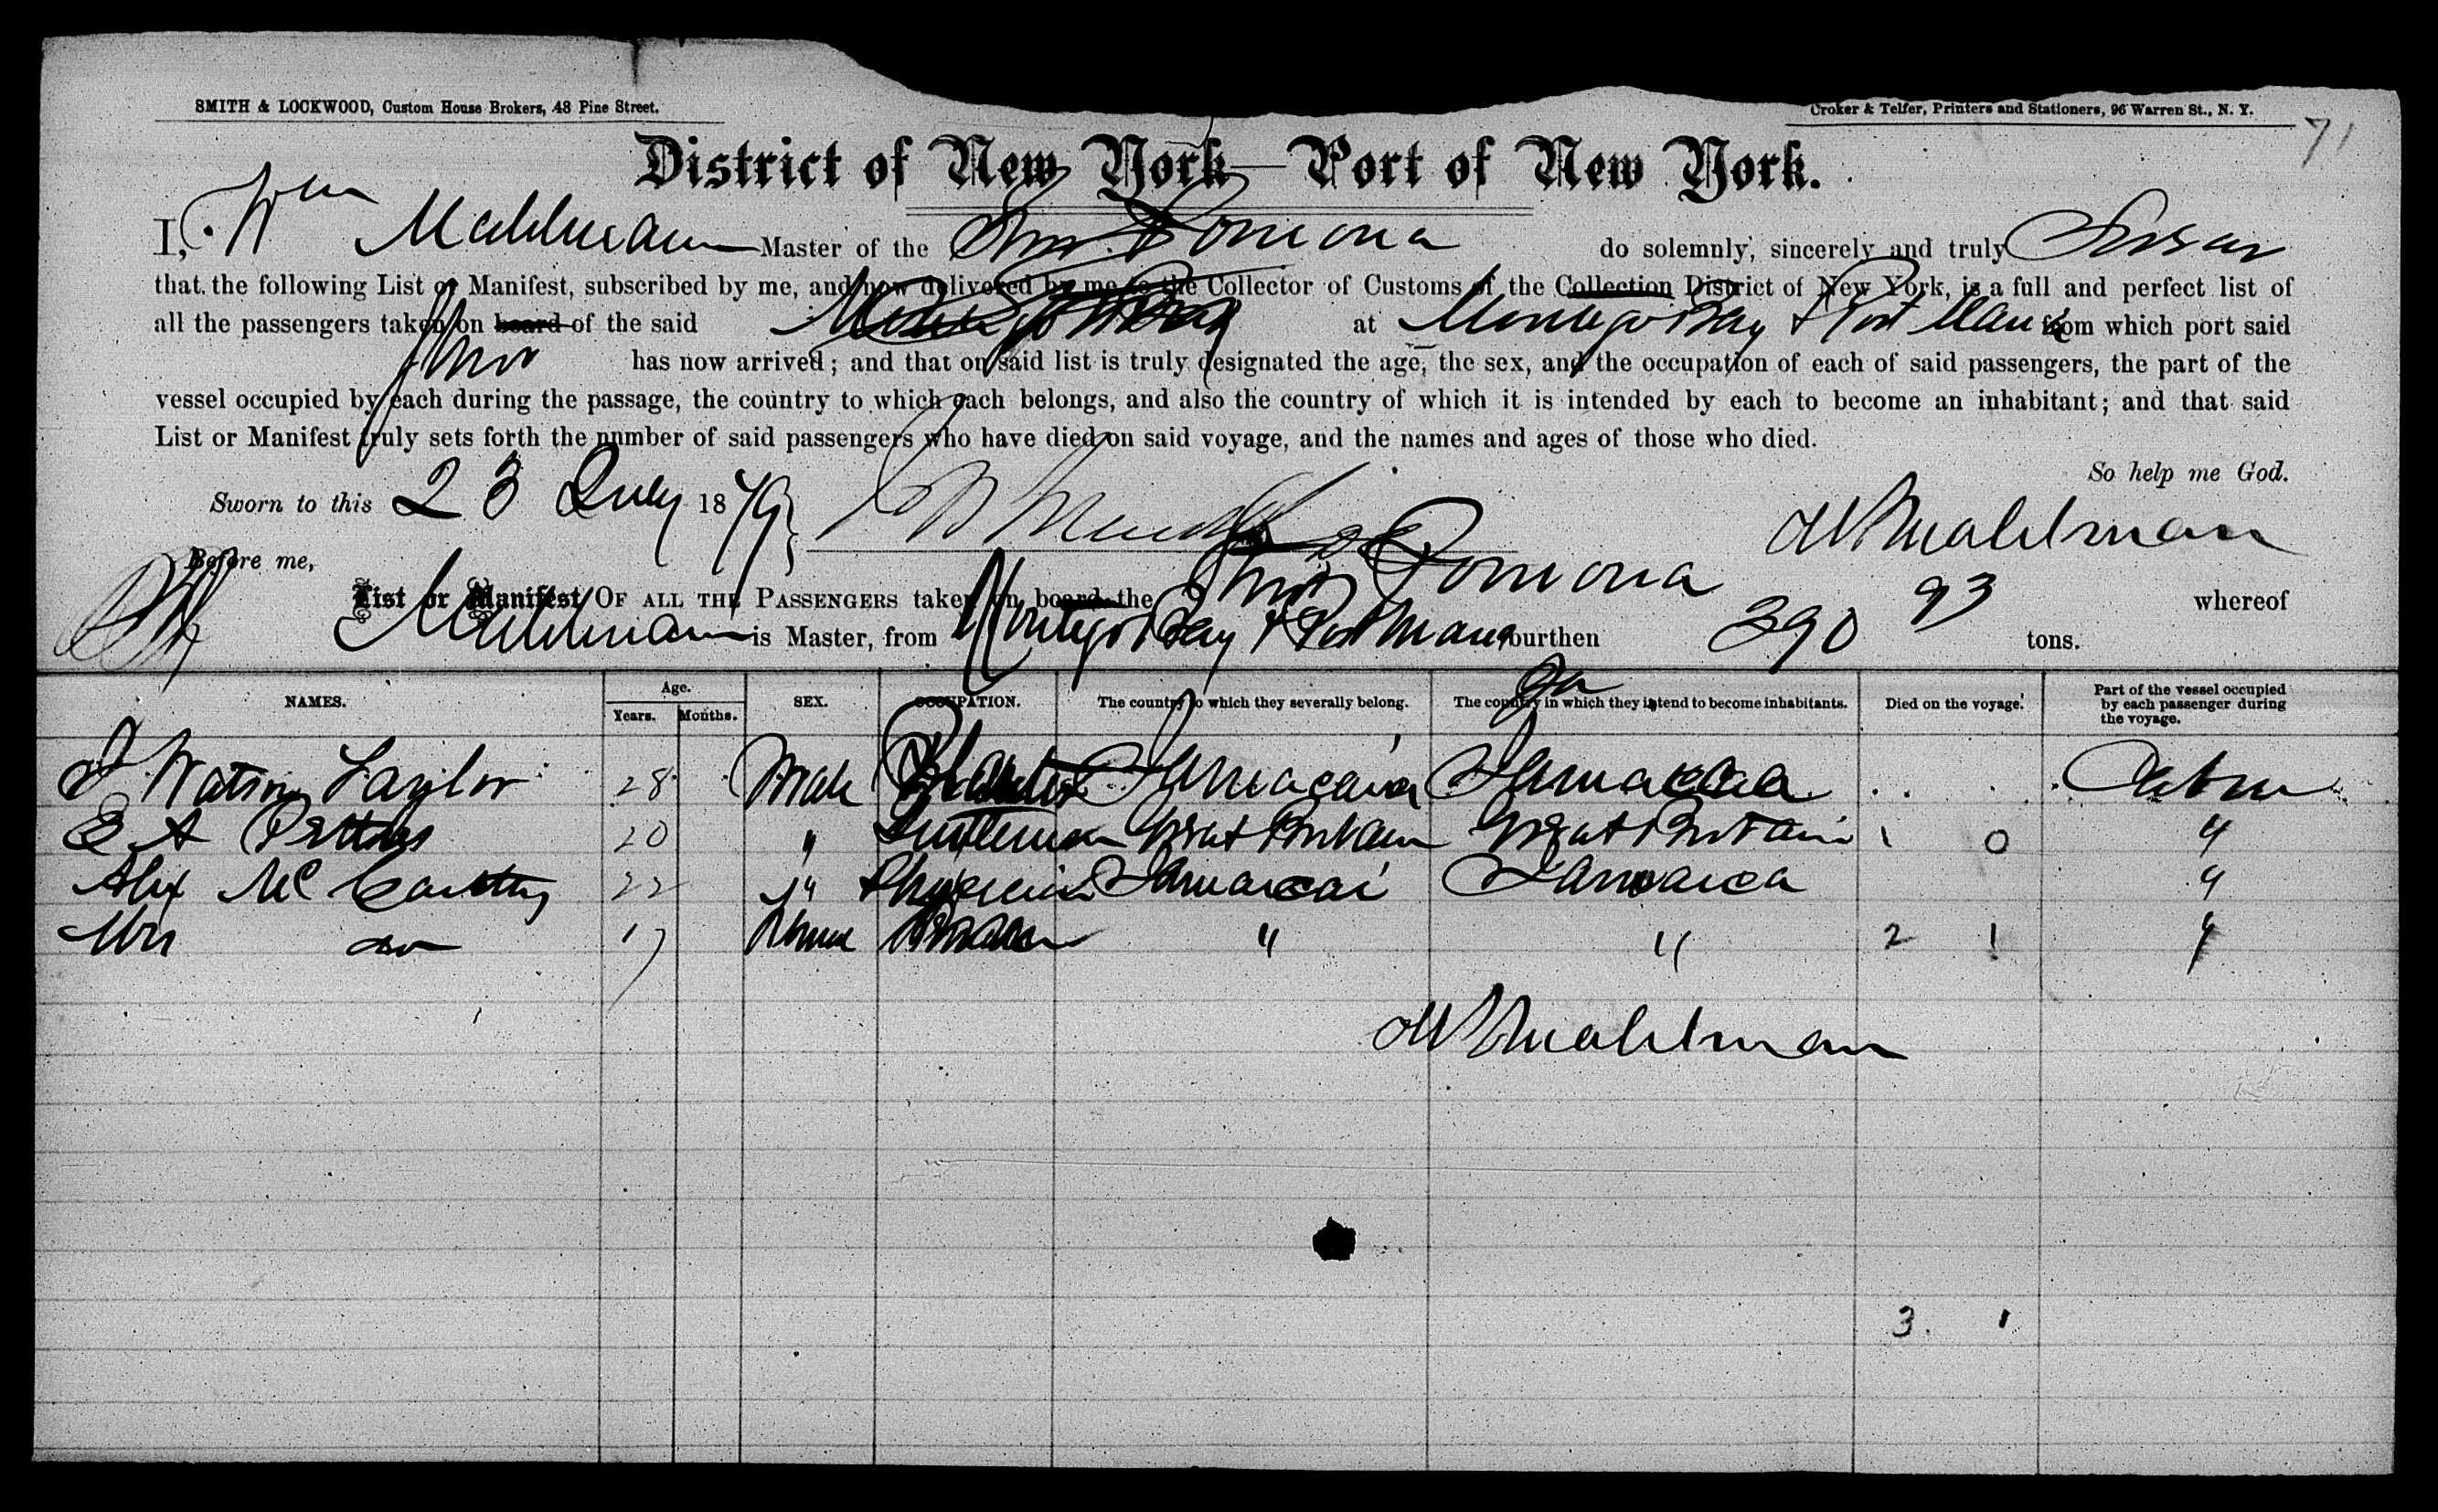 SMITH & LOCKWOOD, Custom House Brokers, 48 Pine Street.
Croker & Telfer, Printers and Stationers, 96 Warren St., N. Y.
71
District of New York—Port of New York.
I, Wm Mahlmann Master of the Pomona do solemnly, sincerely and truly Swear
that the following List or Manifest, subscribed by me, and now delivered by me to the Collector of Customs of the Collection District of New York, is a full and perfect list of
all the passengers taken on board of the said at Montego Bay & Port Maria from which port said
has now arrived; and that on said list is truly designated the age, the sex, and the occupation of each of said passengers, the part of the
vessel occupied by each during the passage, the country to which each belongs, and also the country of which it is intended by each to become an inhabitant; and that said
List or Manifest truly sets forth the number of said passengers who have died on said voyage, and the names and ages of those who died.
So help me God.
Sworn to this 23 July 1879
W Mahlman
Before me,
List or Manifest OF ALL THE PASSENGERS taken on board the Pomona whereof
Mahlmann is Master, from Montego Bay & Port Maria burthen 390 93 tons.
NAMES. Age. Years. Months. SEX. OCCUPATION. The country to which they severally belong. The country in which they intend to become inhabitants. Died on the voyage. Part of the vessel occupied by each passenger during the voyage.
J Watson Taylor 28 Male Planter Jamaica Jamaica Cabin
E A 20 " Gentleman Great Britain Great Britain 1 0 "
Alex McCarthy 22 " Physician Jamaica Jamaica "
Mrs do 17 Female " " 2 1 "
W Mahlman
3 1